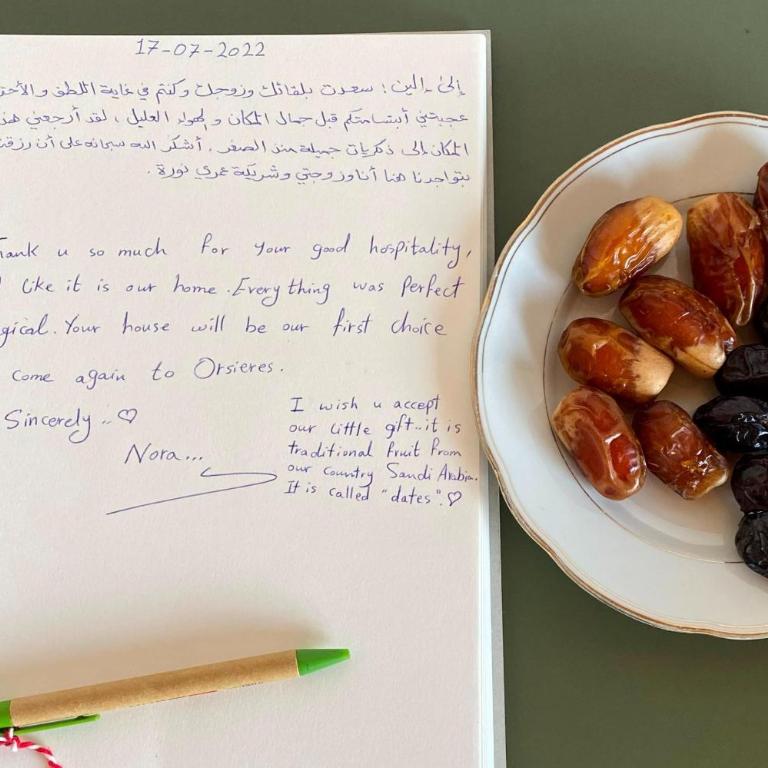 17-07-2022
إلى إلين : سعدت بلقائك وزوجك وكنتم في غاية اللطف و
عجبتني أبتسامتكم قبل جمال المكان و الهواء العليل ، لقد أرجعني
المكان إلى ذكريات جميلة منذ الصغر . أشكر الله سبحانه على أن
بتواجدنا هنا أنا وزوجتي وشريكة عمري نورة .
u so much for your good hospitality,
like it is our home . Everything was Perfect
Your house will be our first choice
come again to Orsieres .
Sincerely .. ♡
Nora...
I wish u accept
our little gft..it is
traditional fruit from
our country Saudi Arabia.
It is called "dates". ♡